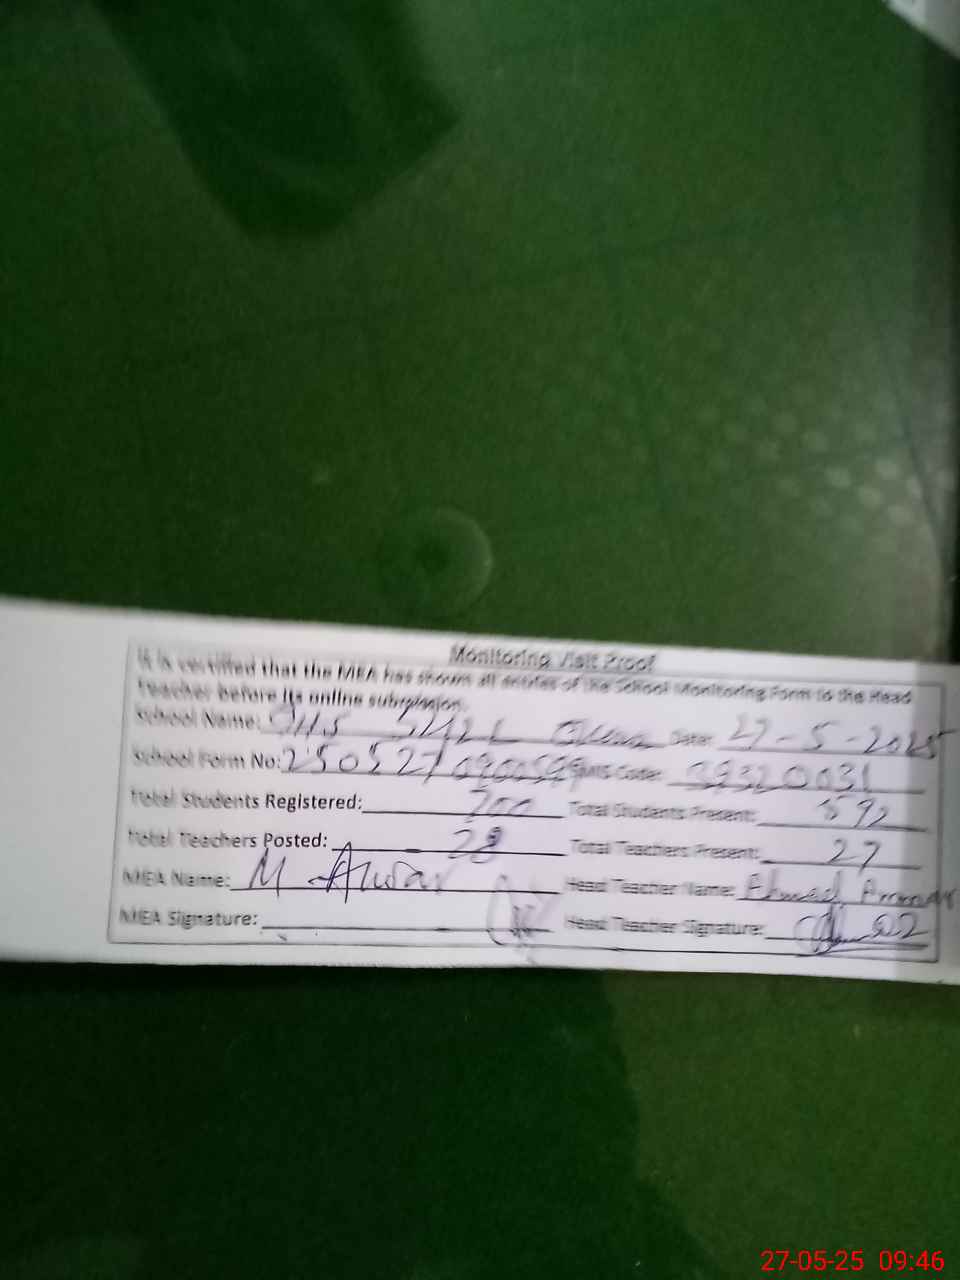 Monitoring Visit Proof
It is certified that the MEA has shown all entries of the School Monitoring Form to the Head
Teacher before its online submission.
School Name: Date: 27-5-2025
School Form No: EMIS Code: 39320031
Total Students Registered: 700 Total Students Present: 592
Total Teachers Posted: 28 Total Teachers Present: 27
MEA Name: M Head Teacher Name: Ahmad
MEA Signature: Head Teacher Signature:
27-05-25 09:46